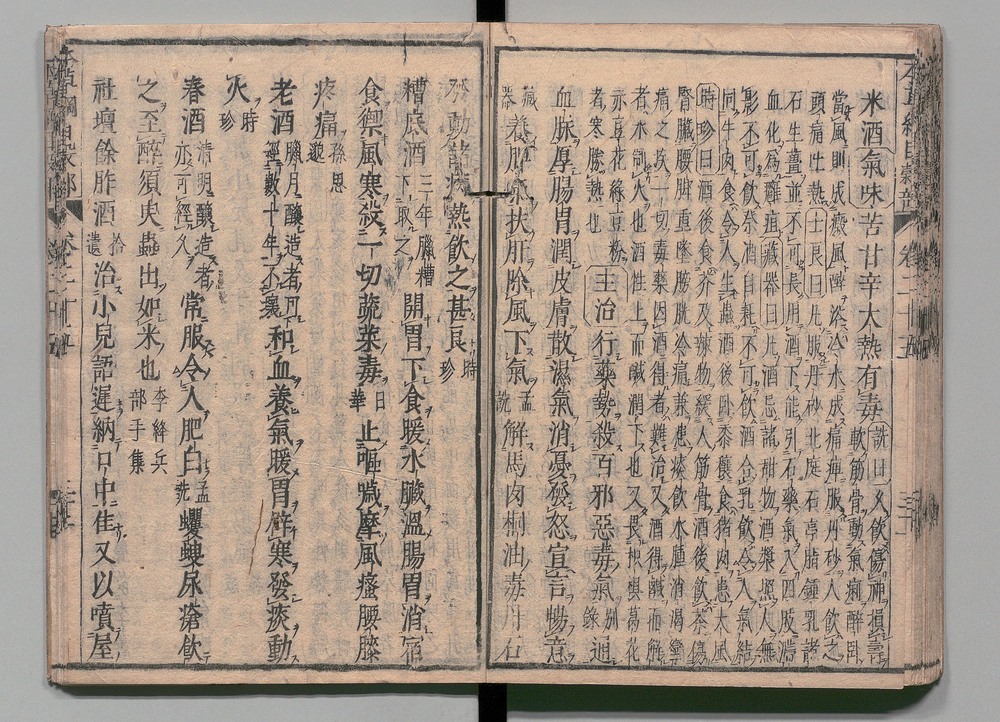 米酒氣味苦甘辛大熱有毒詵曰久飲傷神損壽
軟筋骨動氣痢醉臥
當風則成癜風醉浴冷水成痛痺服丹砂人飲之
頭痛吐熱士良曰凡服丹砂北庭石亭脂鍾乳諸
石生薑並不可長用酒下能引石藥氣入四肢滯
血化為癰疽藏器曰凡酒忌諸甜物酒漿照人無
影不可飲祭酒自耗不可飲酒合乳飲令人氣結
同牛肉食令人生蟲酒後臥黍穰食猪肉患大風
時珍曰酒後食芥及辣物緩人筋骨酒後飲茶傷
腎臟腰脚重墜膀胱冷痛兼患痰飲水腫消渴攣
痛之疾一切毒藥因酒得者難治又酒得鹹而解
者水制火也酒性上而鹹潤下也又畏枳椇葛花
赤豆花綠豆粉
者寒勝熱也主治行藥勢殺百邪惡毒氣別錄通
血脉厚腸胃潤皮膚散濕氣消憂發怒宣言暢意
藏器養脾氣扶肝除風下氣孟詵解馬肉桐油毒丹石
發動諸病熱飲之甚良時珍
糟底酒三年臘糟下取之開胃下食暖水臟溫腸胃消宿
食禦風寒殺一切蔬菜毒日華止嘔噦摩風瘙腰膝
疼痛孫思邈
老酒臘月釀造者可經數十年不壞和血養氣暖胃辟寒發痰動
火時珍
春酒清明釀造者亦可經久常服令人肥白孟詵蠼螋尿瘡飲
之至醉須臾蟲出如米也李絳兵部手集
社壇餘胙酒拾遺治小兒語遲納口中佳又以噴屋